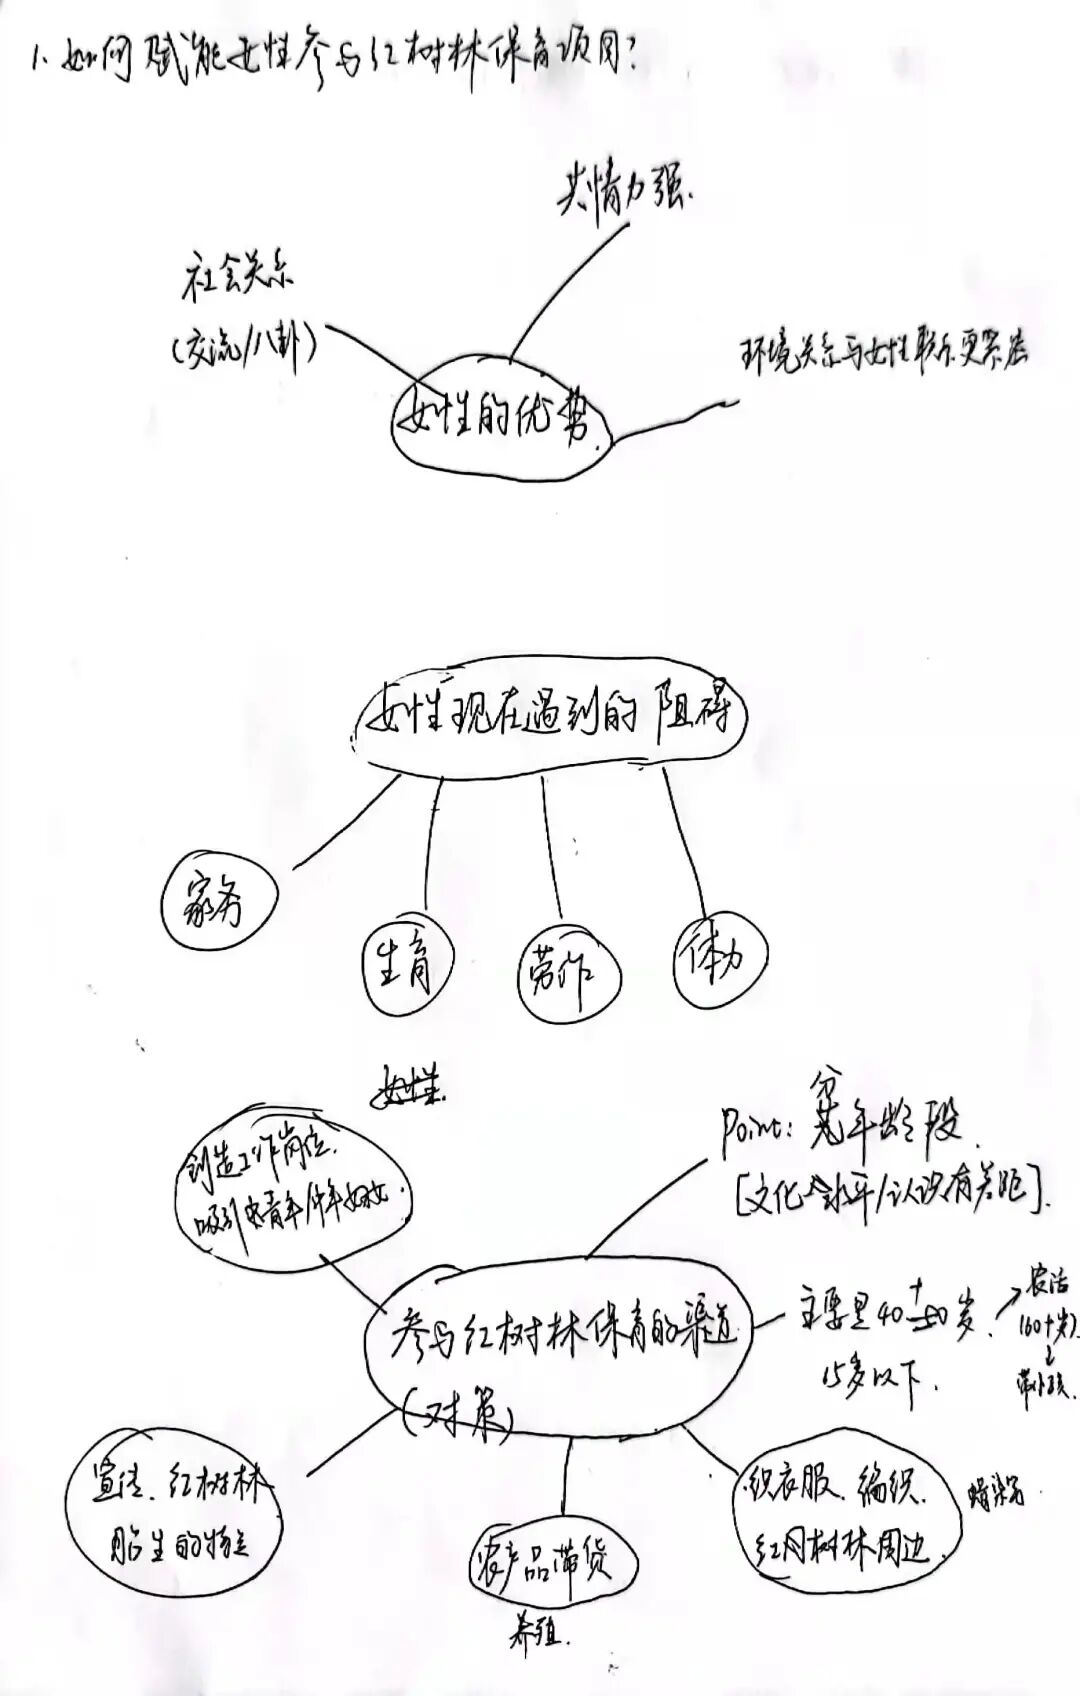 1. 如何赋能女性参与红树林保育项目?
共情力强.
社会关系
(交流/八卦)
环境关系与女性联系更紧密
女性的优势.
女性现在遇到的阻碍
家务
生育
劳作
体力
女性.
创造工作岗位.
吸引青年/中年妇女.
Point: 分年龄段.
[文化水平/认识有差距].
参与红树林保育的渠道
(对策)
主要是40+50岁.
15岁以下.
农活
(60+岁)
带小孩.
宣传、红树林
胎生的特点
农产品带货
养殖.
织衣服、编织、
红树林周边.
蜡染